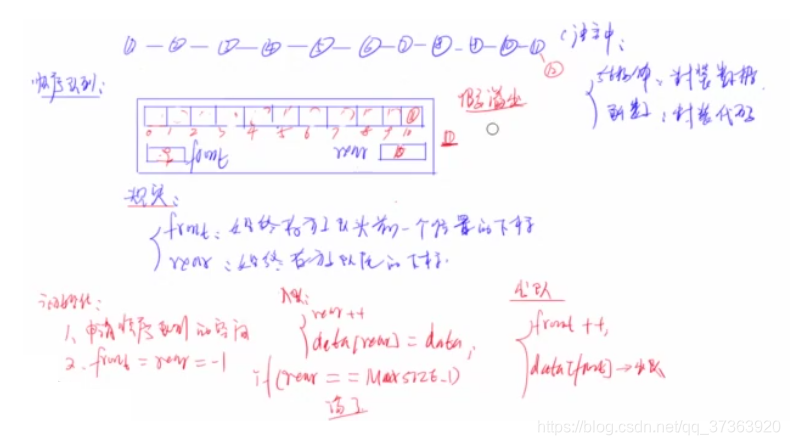 ① — ② — ③ — ④ — ⑤ — ⑥ — ⑦ — ⑧ — ⑨ — ⑩ — ⑪
⑫
C语言中:
结构体:封装数据
函数:封装代码
顺序队列:
假溢出
0 1 2 3 4 5 6 7 8 9 10
front
rear 10
规定:
front:始终存放队头前一个位置的下标
rear:始终存放队尾的下标
初始化:
1、申请顺序队列的空间
2. front = rear = -1
入队:
rear ++
data[rear] = data;
if(rear == Maxsize-1)
满了
出队
front ++,
data[front] → 出队
https://blog.csdn.net/qq_37363920